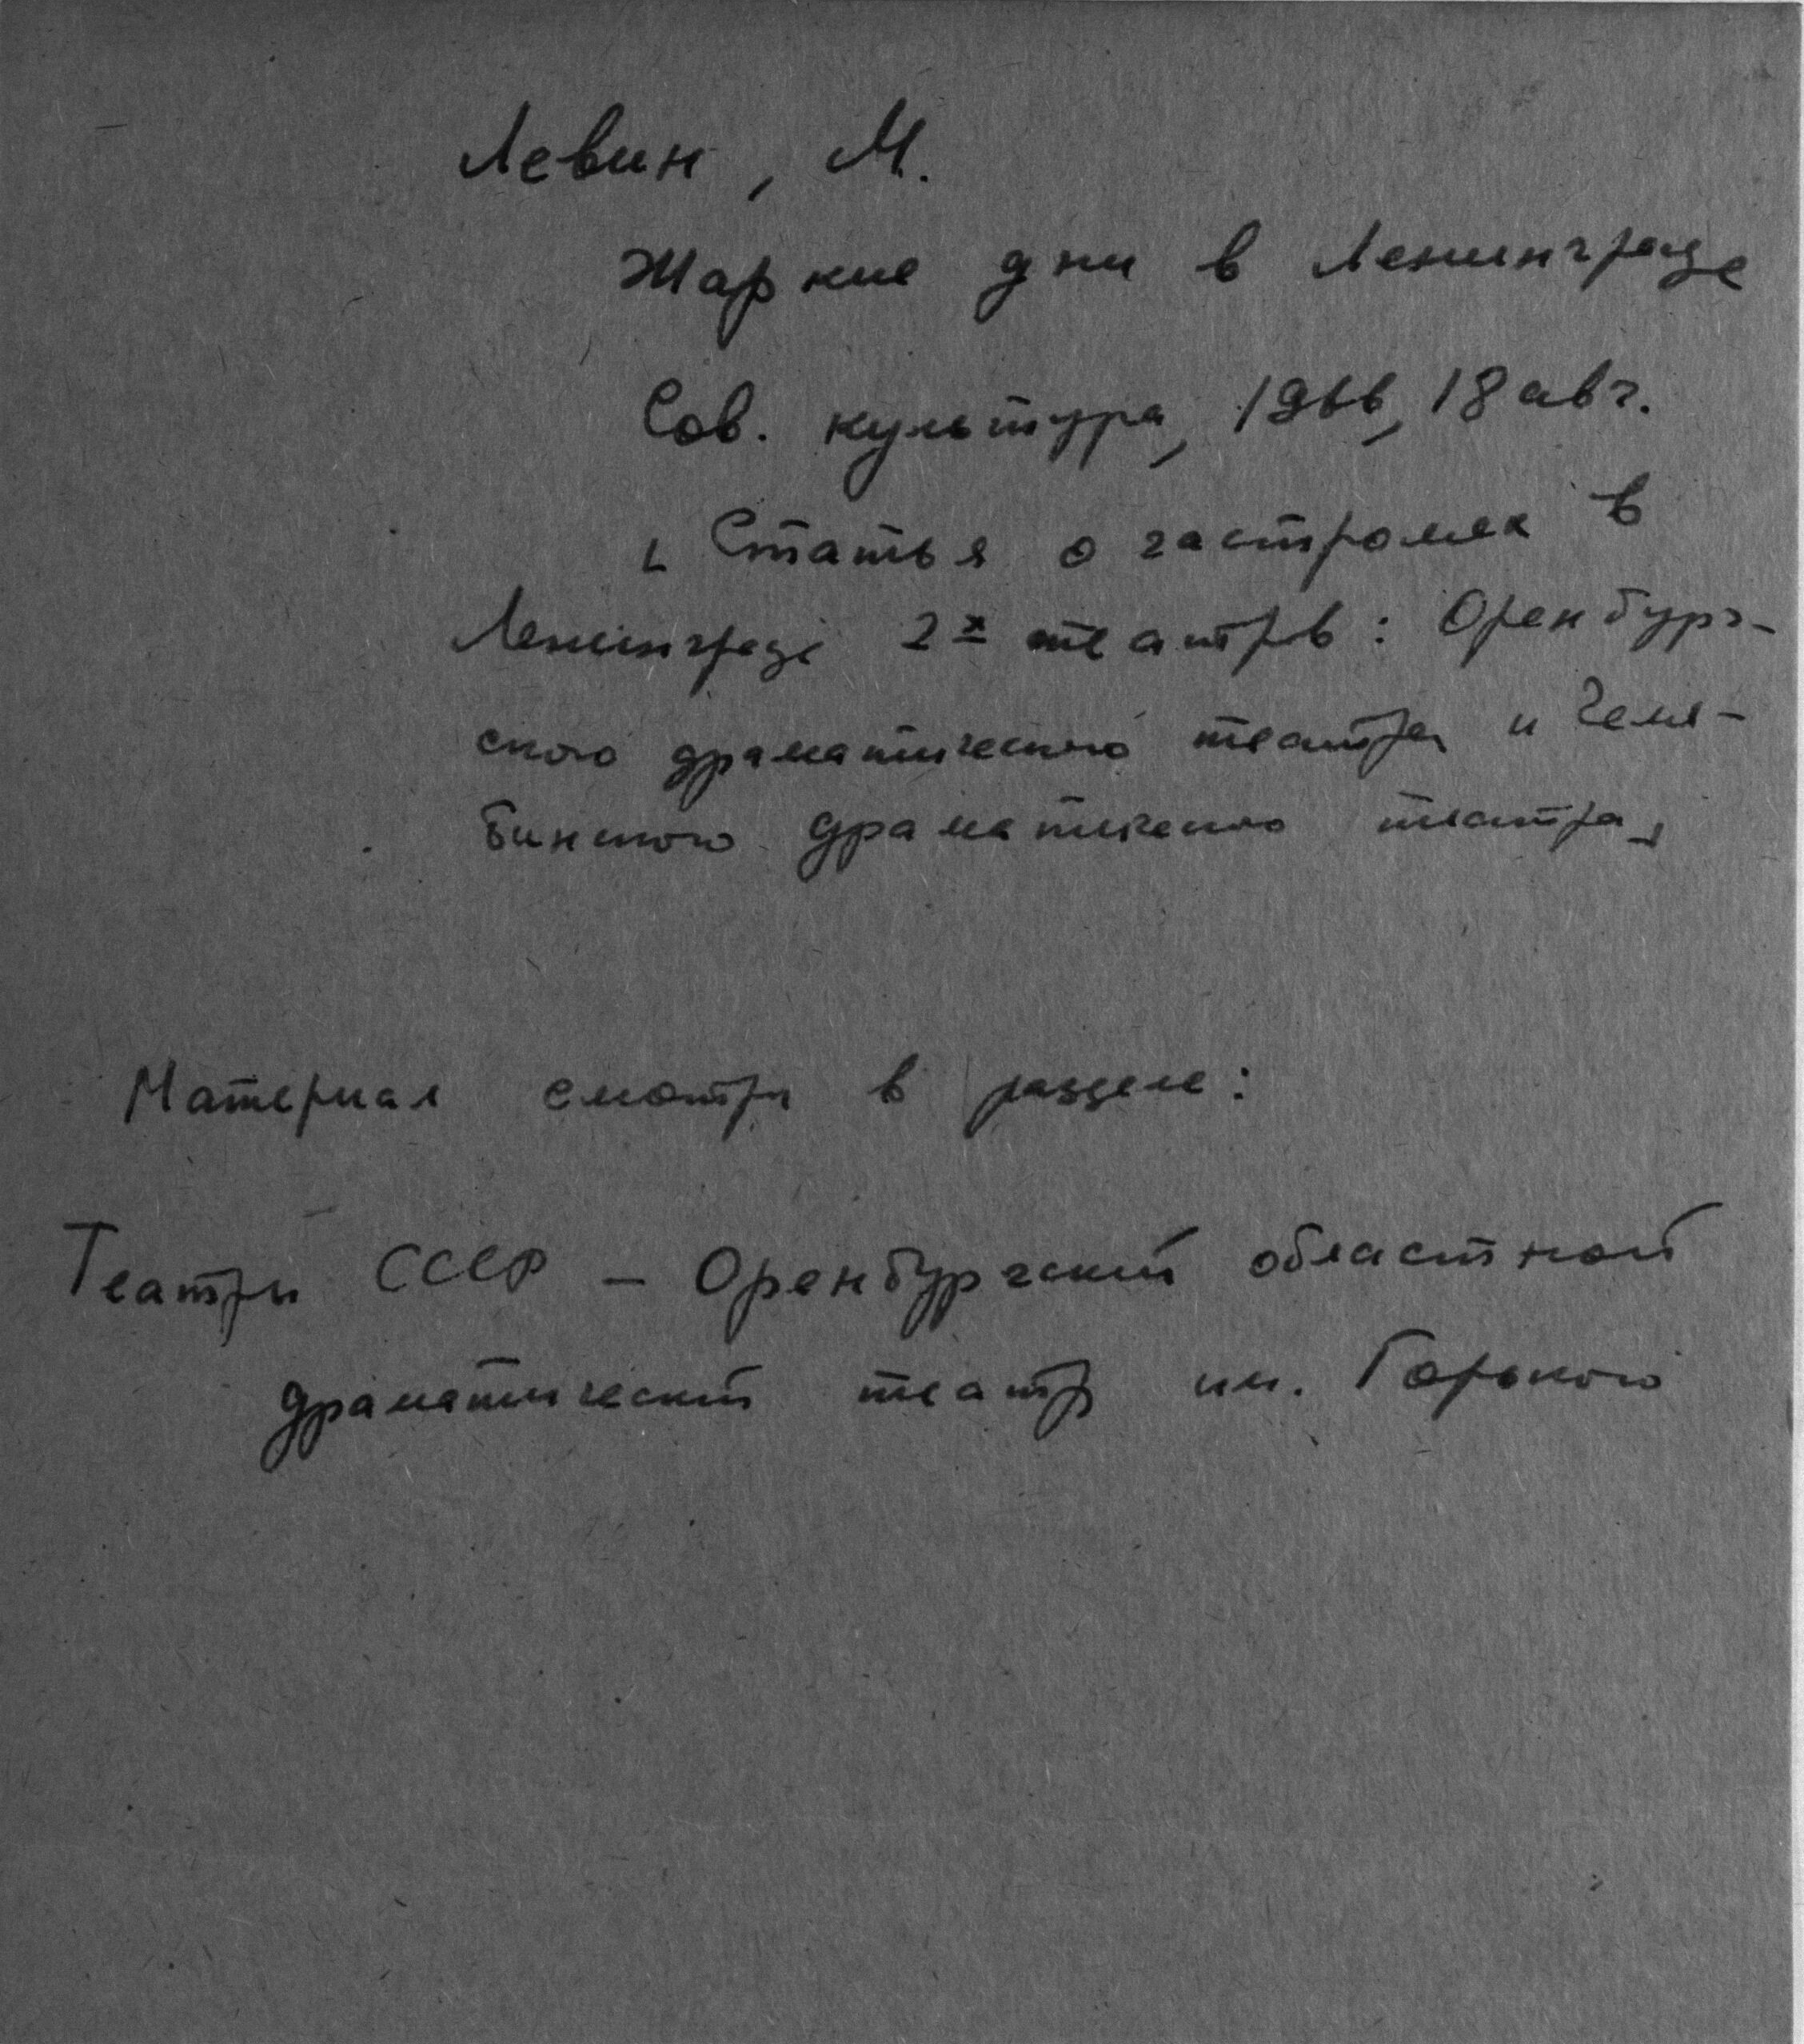 Левин, М.
Жаркие дни в Ленинграде
Сов. культура, 1966, 18 авг.
Статья о гастролях в
Ленинграде 2х театров: Оренбург-
ского драматического театра и Челя-
бинского драматического театра
Материал смотри в разделе:
Театры СССР – Оренбургский областной
драматический театр им. Горького